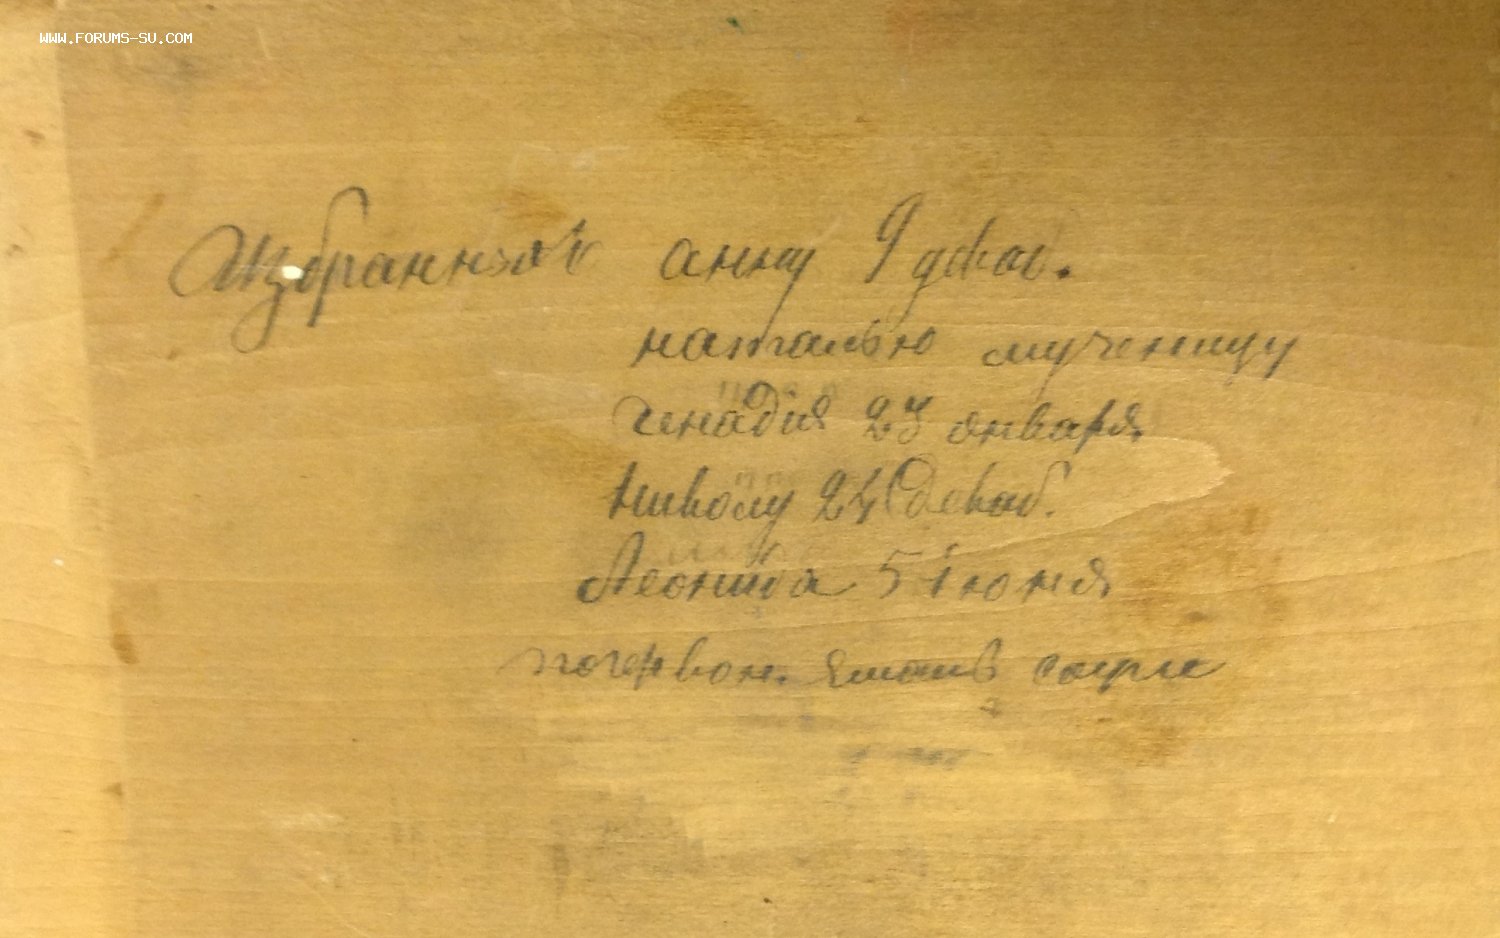 WWW.FORUMS-SU.COM
Избранных анну 9 декаб.
наталью мученицу
генадия 23 января
Николу 24 декаб.
Леонида 5 июня